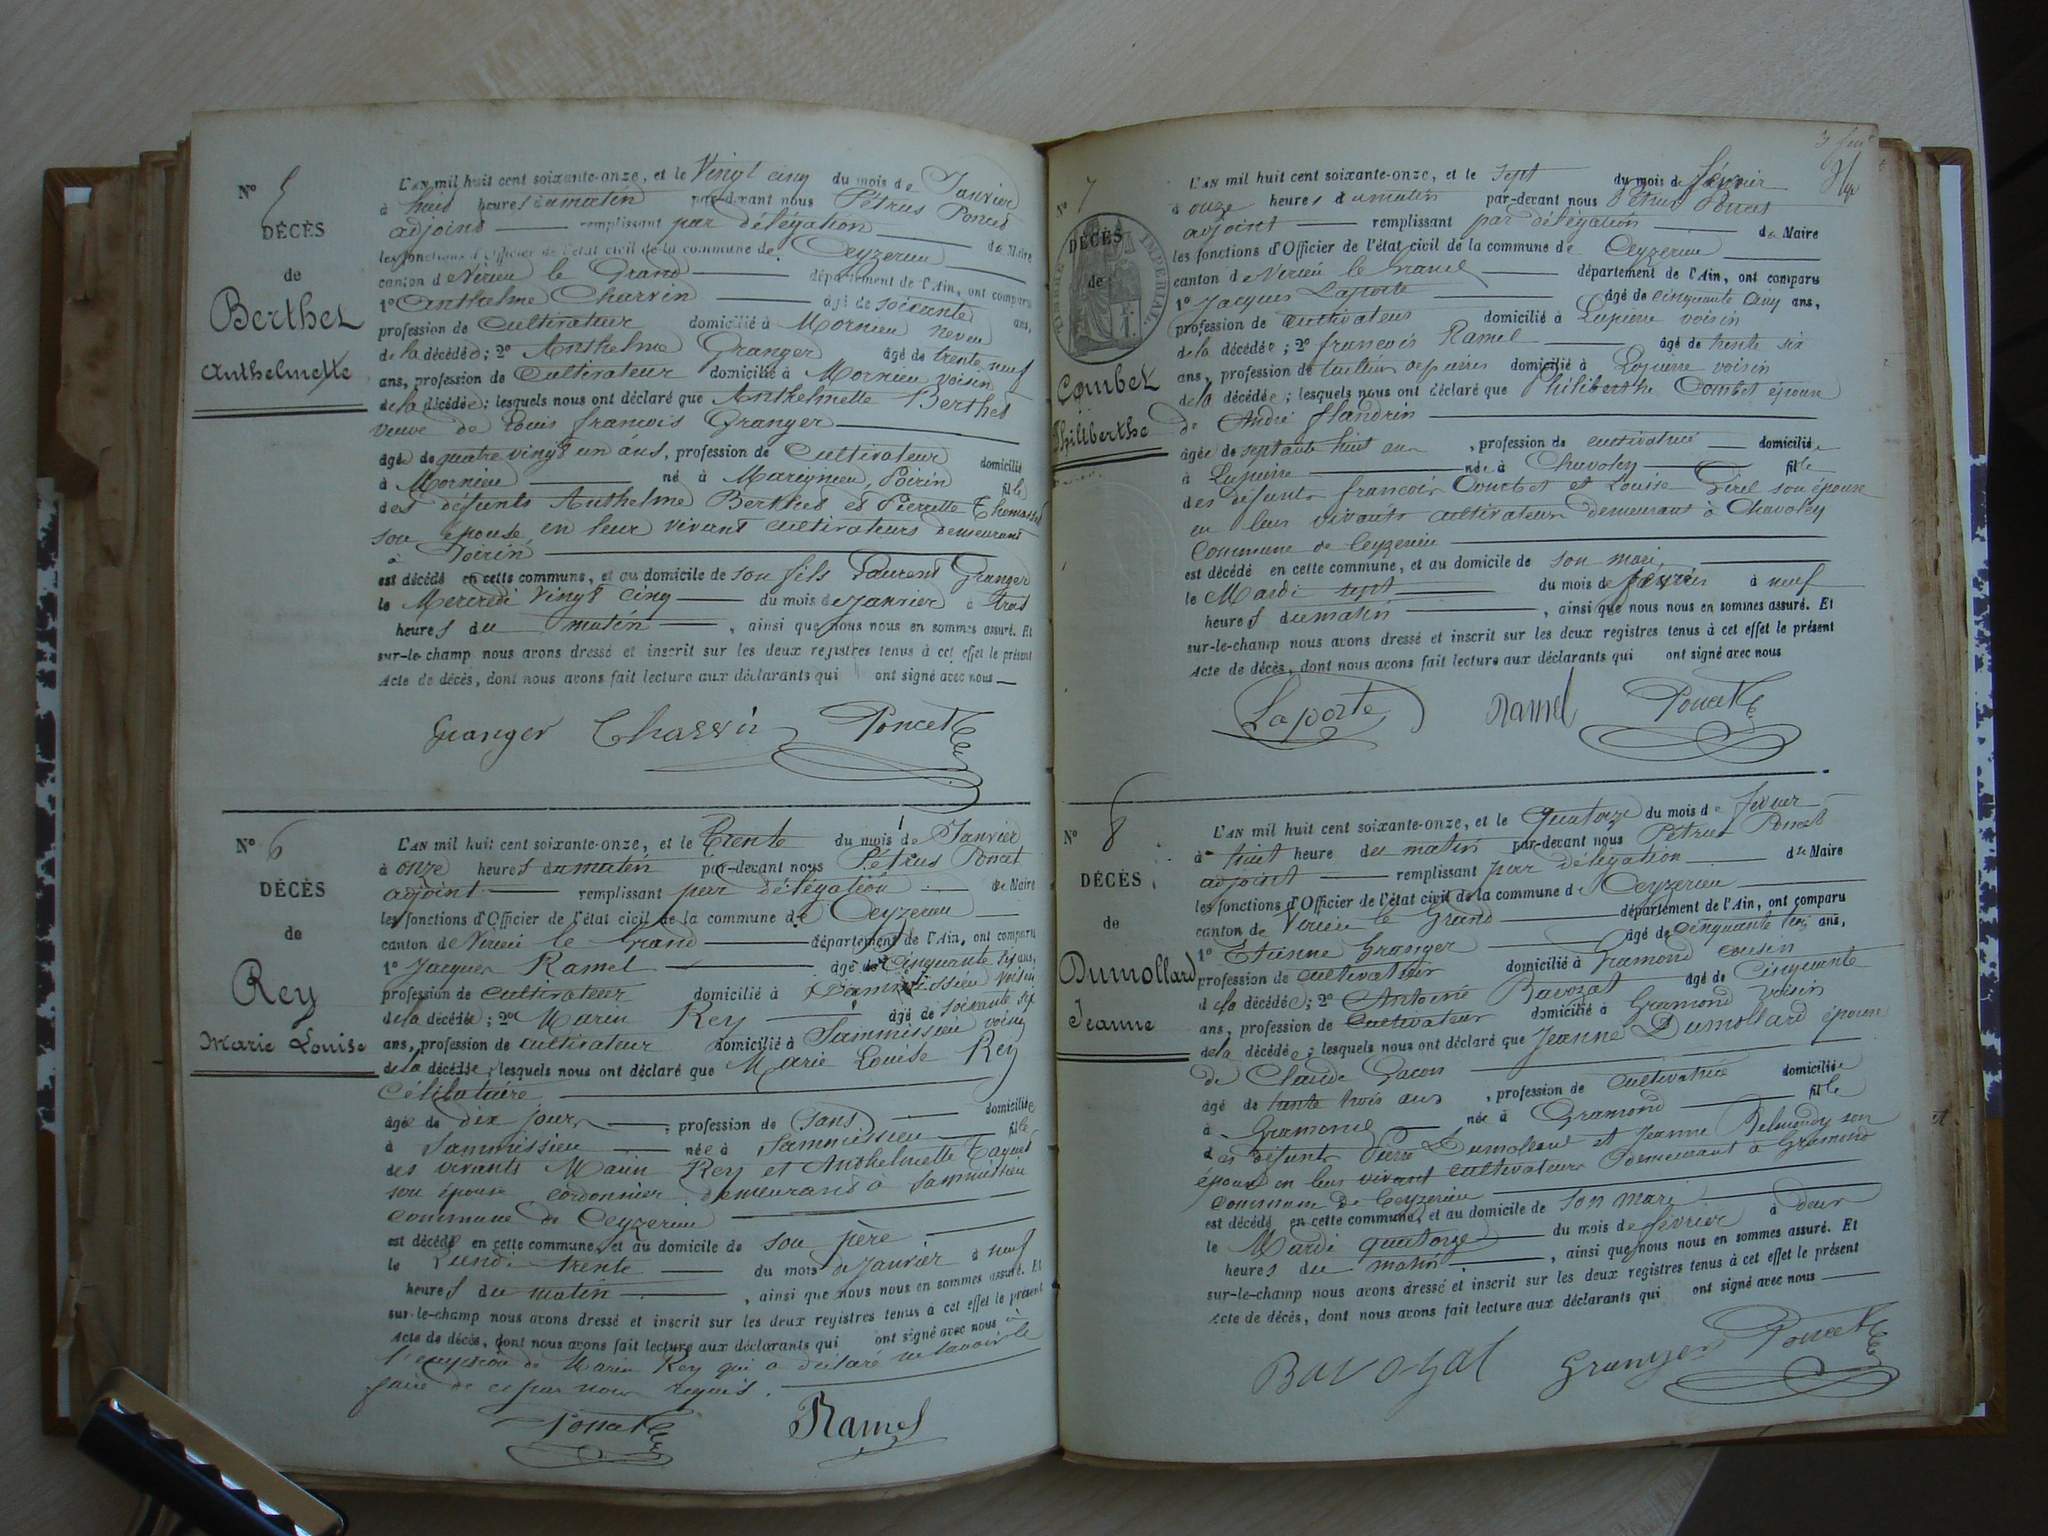 N° 5
DÉCÈS
de
Berthet
Anthelmette
L'AN mil huit cent soixante-onze, et le Vingt cinq du mois de Janvier
à huit heures du matin par-devant nous Pétrus Poncet
adjoint remplissant par délégation du Maire
les fonctions d'Officier de l'état civil de la commune de Ceyzerieu
canton de Virieu le Grand département de l'Ain, ont comparu
1° Anthelme Charvin âgé de soixante ans,
profession de Cultivateur domicilié à Mornieu neveu
de la décédée ; 2° Anthelme Granger âgé de trente neuf
ans, profession de Cultivateur domicilié à Mornieu voisin
de la décédée ; lesquels nous ont déclaré que Anthelmette Berthet
veuve de Louis françois Granger
âgée de quatre vingt un ans, profession de Cultivateur domicilié
à Mornieu né à Marignieu, Poirin fille
des défunts Anthelme Berthet et Pierrette Thomasset
son épouse, en leur vivant cultivateurs demeurant
à Poirin
est décédé en cette commune, et au domicile de son fils Laurent Granger
le Mercredi Vingt cinq du mois de Janvier à trois
heures du matin , ainsi que nous nous en sommes assuré. Et
sur-le-champ nous avons dressé et inscrit sur les deux registres tenus à cet effet le présent
Acte de décès, dont nous avons fait lecture aux déclarants qui ont signé avec nous
Granger Charvin Poncet
N° 6
DÉCÈS
de
Rey
Marie Louise
L'AN mil huit cent soixante-onze, et le Trente du mois de Janvier
à onze heures du matin par-devant nous Pétrus Poncet
adjoint remplissant par délégation du Maire
les fonctions d'Officier de l'état civil de la commune de Ceyzerieu
canton de Virieu le Grand département de l'Ain, ont comparu
1° Jacques Ramel âgé de Cinquante ans,
profession de cultivateur domicilié à Sammissieu voisin
de la décédée ; 2° Marin Rey âgé de soixante six
ans, profession de cultivateur domicilié à Sammissieu voisin
de la décédée, lesquels nous ont déclaré que Marie Louise Rey
Célibataire
âgée de dix jours, profession de Sans domiciliée
à Sammissieu née à Sammissieu fille
des vivants Marin Rey et Anthelmette
son épouse cordonnier demeurant à Sammissieu
commune de Ceyzerieu
est décédé en cette commune, et au domicile de son père
le Lundi trente du mois de Janvier à neuf
heures du matin , ainsi que nous nous en sommes assuré. Et
sur-le-champ nous avons dressé et inscrit sur les deux registres tenus à cet effet le présent
Acte de décès, dont nous avons fait lecture aux déclarants qui ont signé avec nous à
l'exception de Marin Rey qui a déclaré ne savoir le
faire de ce par nous requis.
Poncet Ramel
N° 7
DÉCÈS
de
TIMBRE IMPÉRIAL
Combet
Philiberthe
L'AN mil huit cent soixante-onze, et le sept du mois de février
à onze heures du matin par-devant nous Pétrus Poncet
adjoint remplissant par délégation du Maire
les fonctions d'Officier de l'état civil de la commune de Ceyzerieu
canton de Virieu le Grand département de l'Ain, ont comparu
1° Jacques Laporte âgé de cinquante cinq ans,
profession de cultivateur domicilié à Lapierre voisin
de la décédée ; 2° françois Ramel âgé de trente six
ans, profession de tailleur de pierres domicilié à Lapierre voisin
de la décédée ; lesquels nous ont déclaré que Philiberthe Combet épouse
de André Flandrin
âgée de septante huit ans , profession de cultivatrice domiciliée
à Lapierre née à Chavoley fille
des défunts françois Combet et Louise Girel son épouse
en leur vivants cultivateurs demeurant à Chavoley
commune de Ceyzerieu
est décédé en cette commune, et au domicile de son mari,
le Mardi sept du mois de février à neuf
heures du matin , ainsi que nous nous en sommes assuré. Et
sur-le-champ nous avons dressé et inscrit sur les deux registres tenus à cet effet le présent
Acte de décès, dont nous avons fait lecture aux déclarants qui ont signé avec nous
Laporte Ramel Poncet
N° 8
DÉCÈS
de
Dumollard
Jeanne
L'AN mil huit cent soixante-onze, et le Quatorze du mois de fevrier
à huit heure du matin par-devant nous Pétrus Poncet
adjoint remplissant par délégation du Maire
les fonctions d'Officier de l'état civil de la commune de Ceyzerieu
canton de Virieu le Grand département de l'Ain, ont comparu
1° Etienne Granger âgé de cinquante trois ans,
profession de cultivateur domicilié à Gramond cousin
de la décédée ; 2° Antoine Bavozat âgé de Cinquante
ans, profession de Cultivateur domicilié à Gramond voisin
de la décédée ; lesquels nous ont déclaré que Jeanne Dumollard épouse
de Claude Gacon
âgé de trente trois ans , profession de cultivatrice domiciliée
à Gramond née à Gramond fille
des défunts Pierre Dumollard et Jeanne son
épouse en leur vivant cultivateurs demeurant à Gramond
commune de Ceyzerieu
est décédé en cette commune, et au domicile de son mari
le Mardi quatorze du mois de février à deux
heures du matin , ainsi que nous nous en sommes assuré. Et
sur-le-champ nous avons dressé et inscrit sur les deux registres tenus à cet effet le présent
Acte de décès, dont nous avons fait lecture aux déclarants qui ont signé avec nous
Bavozat Granger Poncet